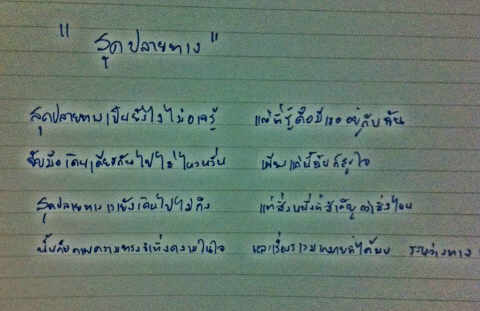 " สุดปลายทาง "
สุดปลายทางเป็นยังไงไม่อาจรู้ แต่ที่รู้คือมีเธออยู่กับฉัน
จับมือเดินเคียงกันไปไม่ไหวหวั่น เพียงแค่นี้ฉันก็สุขใจ
สุดปลายทางเรายังเดินไปไม่ถึง แต่สิ่งหนึ่งที่สำคัญกว่าสิ่งไหน
นั้นคือความทรงจำที่งดงามในใจ และเรื่องราวมากมายที่ได้พบ ระหว่างทาง